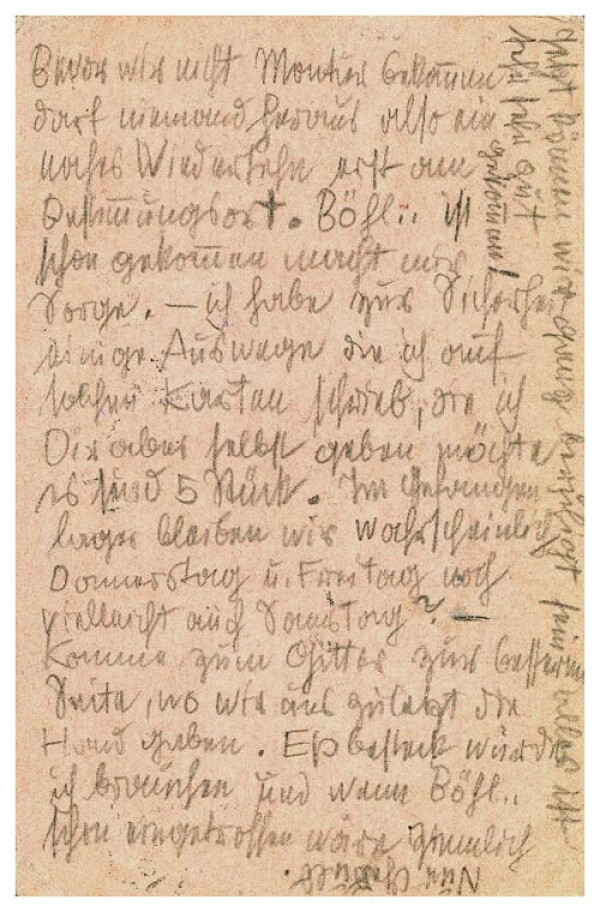 Bevor wir nicht Montur bekommen
darf niemand heraus also ein
nahes Wiedersehn erst am
Bestimmungsort. Böhl.. ist
schon gekommen macht mir
Sorge. — ich habe zur Sicherheit
einige Auswege die ich auf
solchen Karten schrieb, die ich
Dir aber selbst geben möchte
es sind 5 Stück. Im Gefangen
lager bleiben wir wahrscheinlich
Donnerstag u. Freitag noch
vielleicht auch Samstag? —
Komme zum Gitter zur besseren
Seite, wo wir uns zuletzt die
Hand gaben. Eßbesteck würde
ich brauchen und wenn Böhl..
schon eingetroffen wäre ziemlich
Jetzt können wir ganz beruhigt sein alles ist
sehr sehr gut
gekommen!